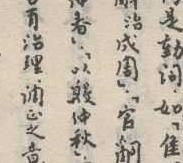 是動詞，如「隹
治成周」，「官嗣
者」，「以仲秋」
有治理調正之意